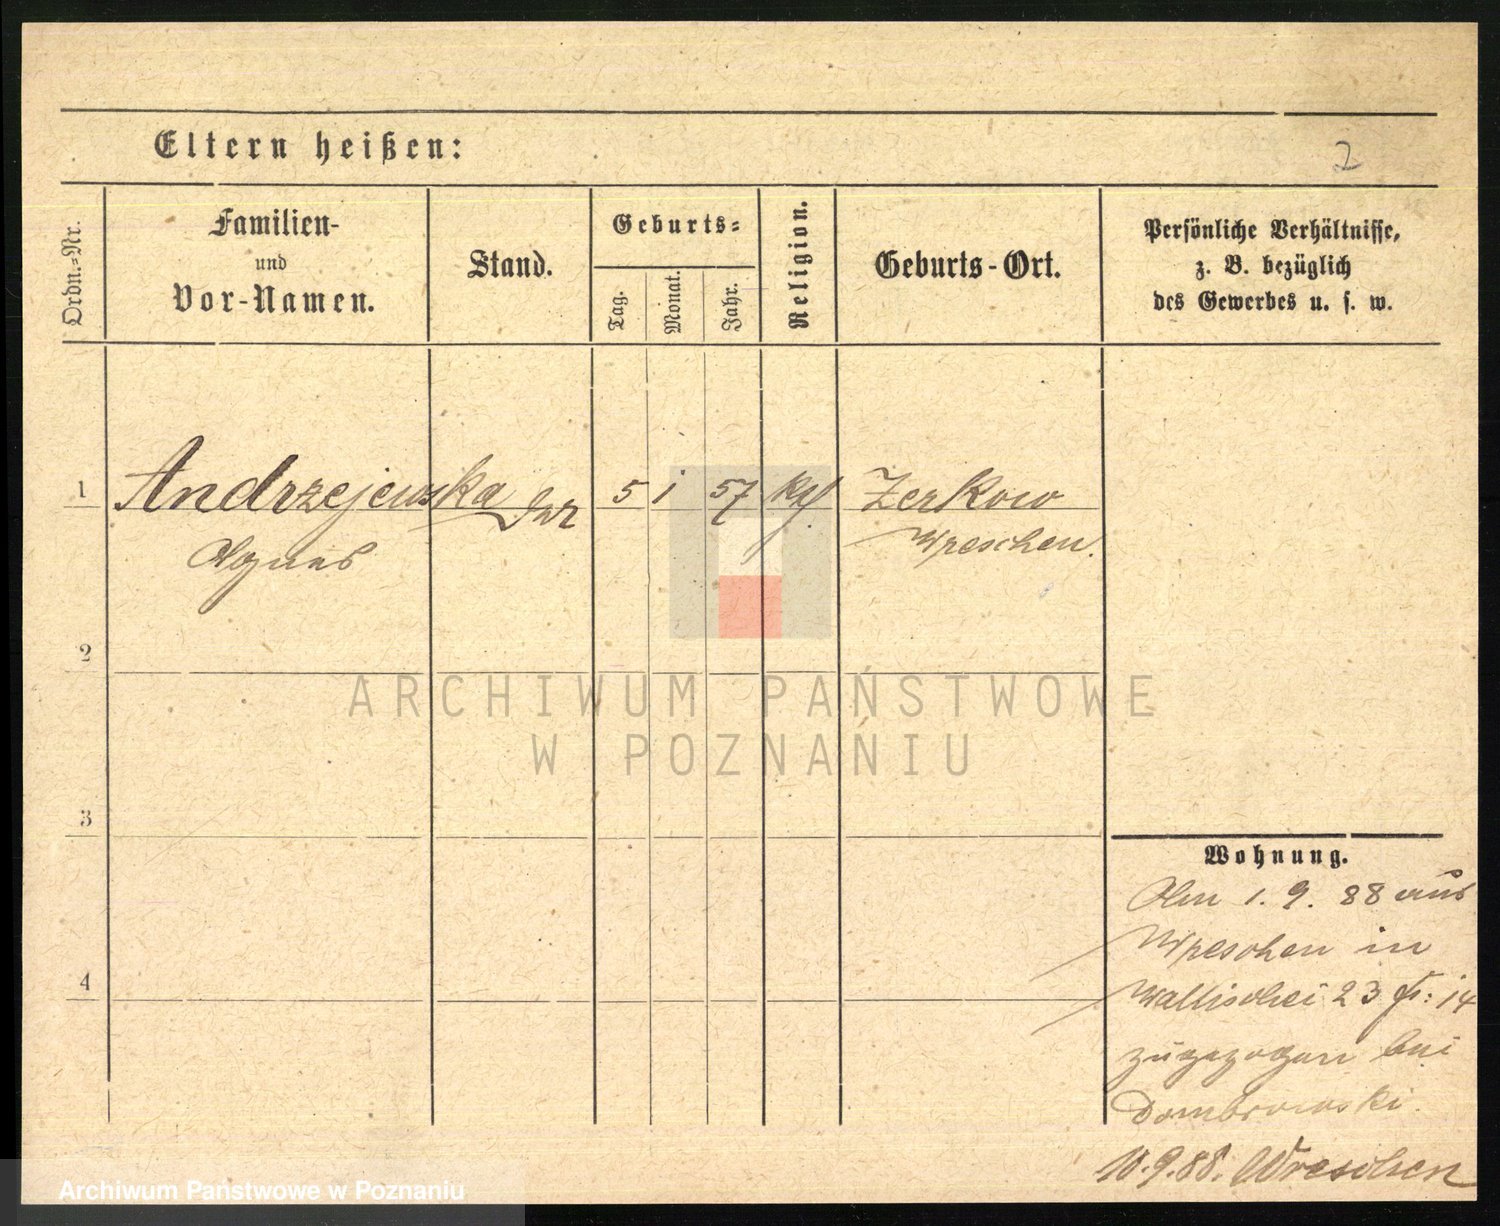 Eltern heißen:
2
Ordn.=Nr.
Familien-
und
Vor-Namen.
Stand.
Geburts=
Tag.
Monat.
Jahr.
Religion.
Geburts-Ort.
Persönliche Verhältnisse,
z. B. bezüglich
des Gewerbes u. s. w.
1
Andrzejewska
5 1 57
Zerkow
Agnes
Wreschen.
2
ARCHIWUM PAŃSTWOWE
W POZNANIU
3
Wohnung.
Am 1. 9. 88 aus
Wreschen in
4
Wallischei 23 14
zugezogen bei
Dombrowski.
10.9.88. Wreschen
Archiwum Panstwowe w Poznaniu